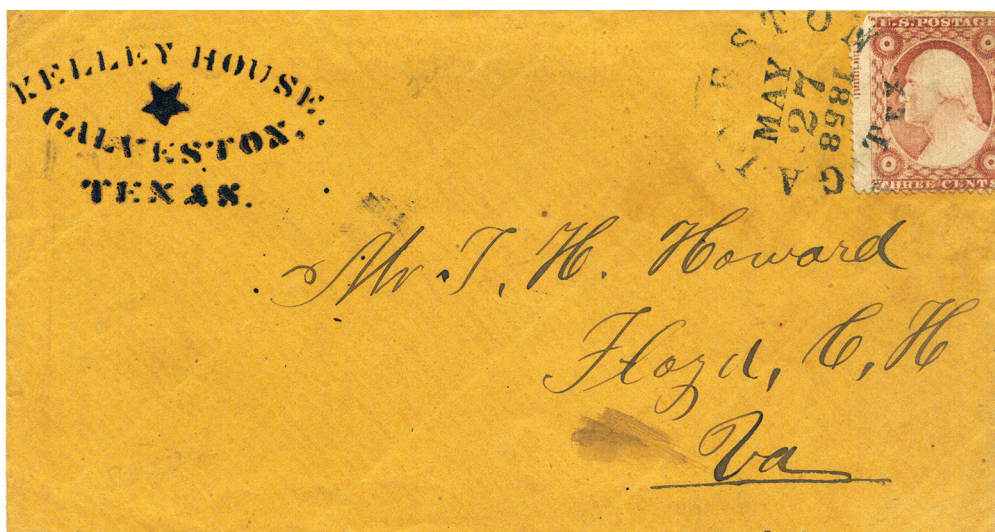 KELLEY HOUSE,
GALVESTON,
TEXAS.
GALVESTON TEX
MAY
27
1858
U.S. POSTAGE
THREE CENTS
Mr T. H. Howard
Floyd, C, H
Va